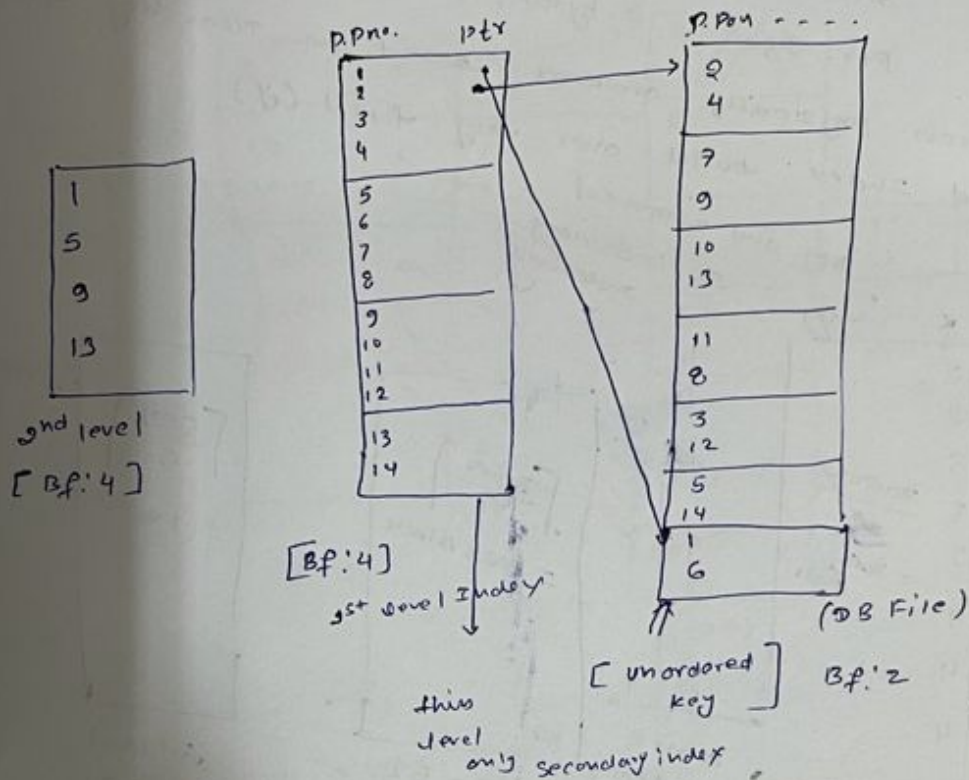 1
5
9
13
2nd level
[Bf: 4]
P.Pno. ptr
1
2
3
4
5
6
7
8
9
10
11
12
13
14
[Bf: 4]
1st level Index
this
level
only secondary index
P.Pon - - - -
2
4
7
9
10
13
11
8
3
12
5
14
1
6
(DB File)
[unordered
key]
Bf: 2